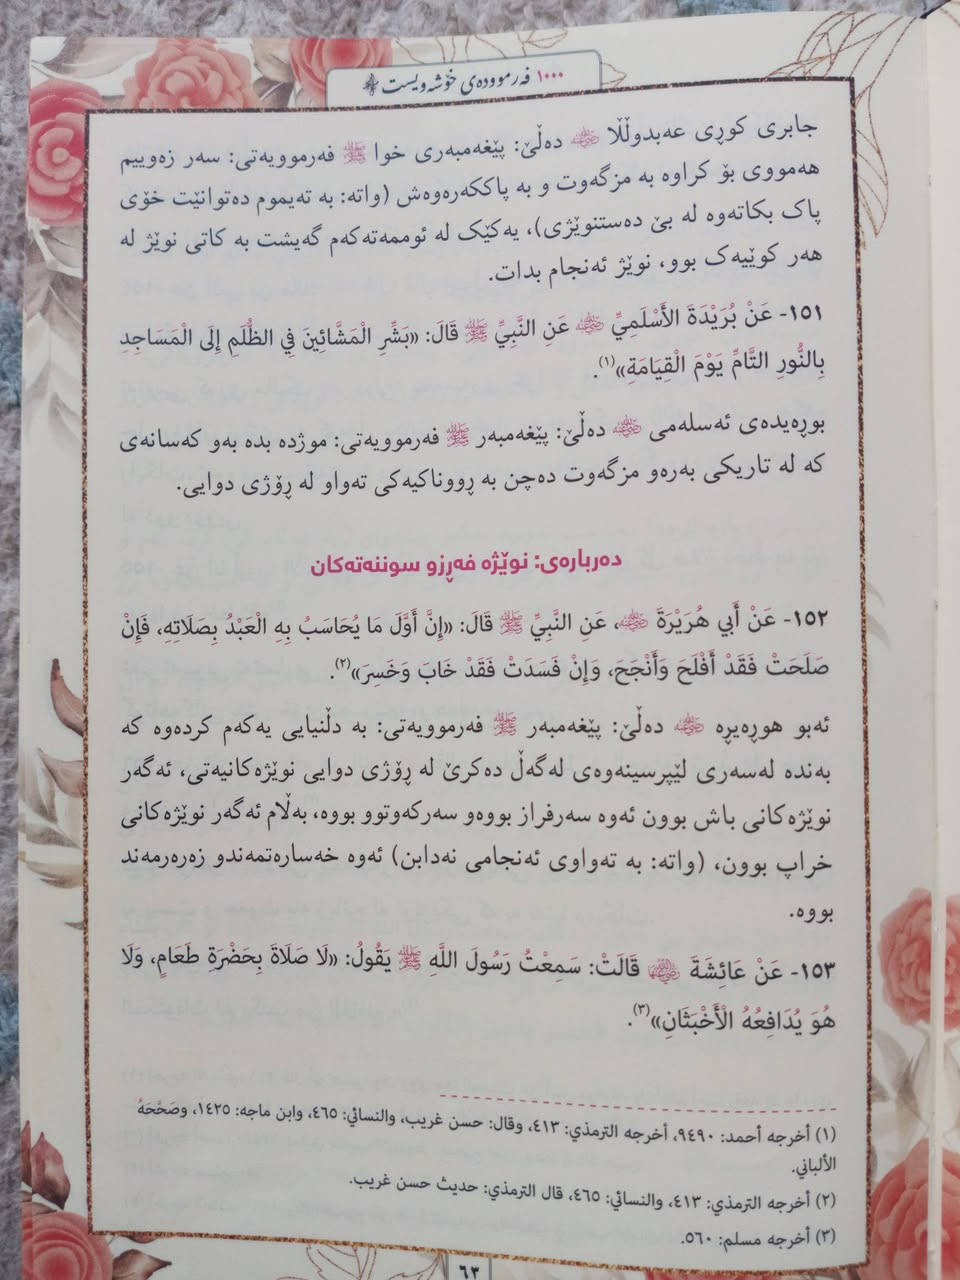 ١٠٠٠ فەرموودەی خۆشەویست ﷺ
جابری کوڕی عەبدوڵڵا ﵁ دەڵێ: پێغەمبەری خوا ﷺ فەرموویەتی: سەر زەوییم
هەمووی بۆ کراوە بە مزگەوت و بە پاککەرەوەش (واتە: بە تەیموم دەتوانێت خۆی
پاک بکاتەوە لە بێ دەستنوێژی)، یەکێک لە ئوممەتەکەم گەیشت بە کاتی نوێژ لە
هەر کوێیەک بوو، نوێژ ئەنجام بدات.
١٥١- عَنْ بُرَيْدَةَ الأَسْلَمِيِّ ﵁ عَنِ النَّبِيِّ ﷺ قَالَ: «بَشِّرِ الْمَشَّائِينَ فِي الظُّلَمِ إِلَى الْمَسَاجِدِ
بِالنُّورِ التَّامِّ يَوْمَ الْقِيَامَةِ»(١).
بورەیدەی ئەسلەمی ﵁ دەڵێ: پێغەمبەر ﷺ فەرموویەتی: موژدە بدە بەو کەسانەی
کە لە تاریکی بەرەو مزگەوت دەچن بە ڕووناکیەکی تەواو لە ڕۆژی دوایی.
دەربارەی: نوێژە فەڕزو سوننەتەکان
١٥٢- عَنْ أَبِي هُرَيْرَةَ ﵁، عَنِ النَّبِيِّ ﷺ قَالَ: «إِنَّ أَوَّلَ مَا يُحَاسَبُ بِهِ الْعَبْدُ بِصَلَاتِهِ، فَإِنْ
صَلَحَتْ فَقَدْ أَفْلَحَ وَأَنْجَحَ، وَإِنْ فَسَدَتْ فَقَدْ خَابَ وَخَسِرَ»(٢).
ئەبو هورەیرە ﵁ دەڵێ: پێغەمبەر ﷺ فەرموویەتی: بە دڵنیایی یەکەم کردەوە کە
بەندە لەسەری لێپرسینەوەی لەگەڵ دەکرێ لە ڕۆژی دوایی نوێژەکانیەتی، ئەگەر
نوێژەکانی باش بوون ئەوە سەرفراز بووەو سەرکەوتوو بووە، بەڵام ئەگەر نوێژەکانی
خراپ بوون، (واتە: بە تەواوی ئەنجامی نەدابن) ئەوە خەسارەتمەندو زەرەرمەند
بووە.
١٥٣- عَنْ عَائِشَةَ ﵂ قَالَتْ: سَمِعْتُ رَسُولَ اللَّهِ ﷺ يَقُولُ: «لَا صَلَاةَ بِحَضْرَةِ طَعَامٍ، وَلَا
هُوَ يُدَافِعُهُ الْأَخْبَثَانِ»(٣).
(١) أخرجه أحمد: ٩٤٩٠، أخرجه الترمذي: ٤١٣، وقال: حسن غريب، والنسائي: ٤٦٥، وابن ماجه: ١٤٢٥، وصَحْحَهُ
الألباني.
(٢) أخرجه الترمذي: ٤١٣، والنسائي: ٤٦٥، قال الترمذي: حديث حسن غريب.
(٣) أخرجه مسلم: ٥٦٠.
٦٢